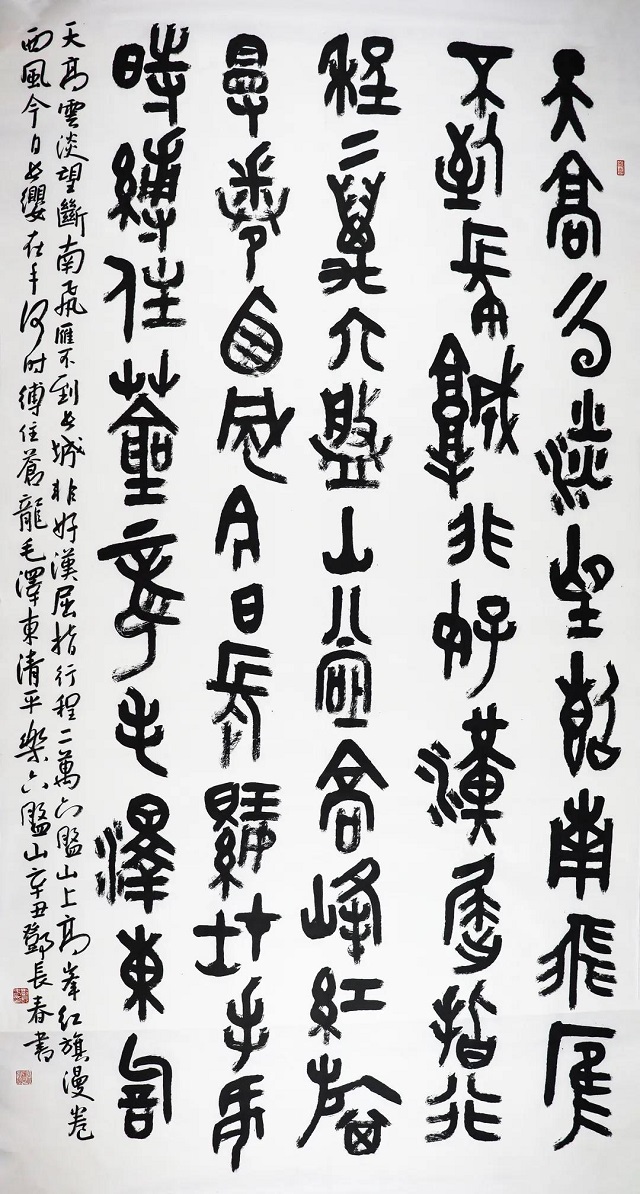 天高云淡望斷南飛雁
不到長城非好漢屈指行
程二萬六盤山上高峰紅旗
曼卷西風今日長纓在手何
時縛住蒼龍毛澤東詞
天高雲淡望斷南飛雁不到長城非好漢屈指行程二萬六盤山上高峯紅旗漫卷
西風今日長纓在手何時縛住蒼龍毛澤東清平樂六盤山辛丑鄧長春書